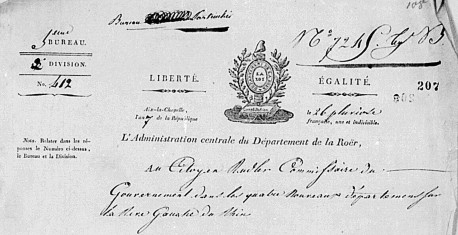 Bureau particulier
108
5ème
BUREAU.
2e DIVISION.
No. 412
No. 724
LA
LOI
LIBERTÉ.
ÉGALITÉ.
207
Aix-la-Chapelle,
l'an 7 de la République
le 26 pluviose
française, une et indivisible.
Nota: Relater dans les ré-
ponses le Numéro ci-dessus,
le Bureau et la Division.
L'Administration centrale du Département de la Roër,
Au Citoyen Rudler Commissaire du
Gouvernement dans les quatre Nouveaux départemens sur
la Rive Gauche du Rhin